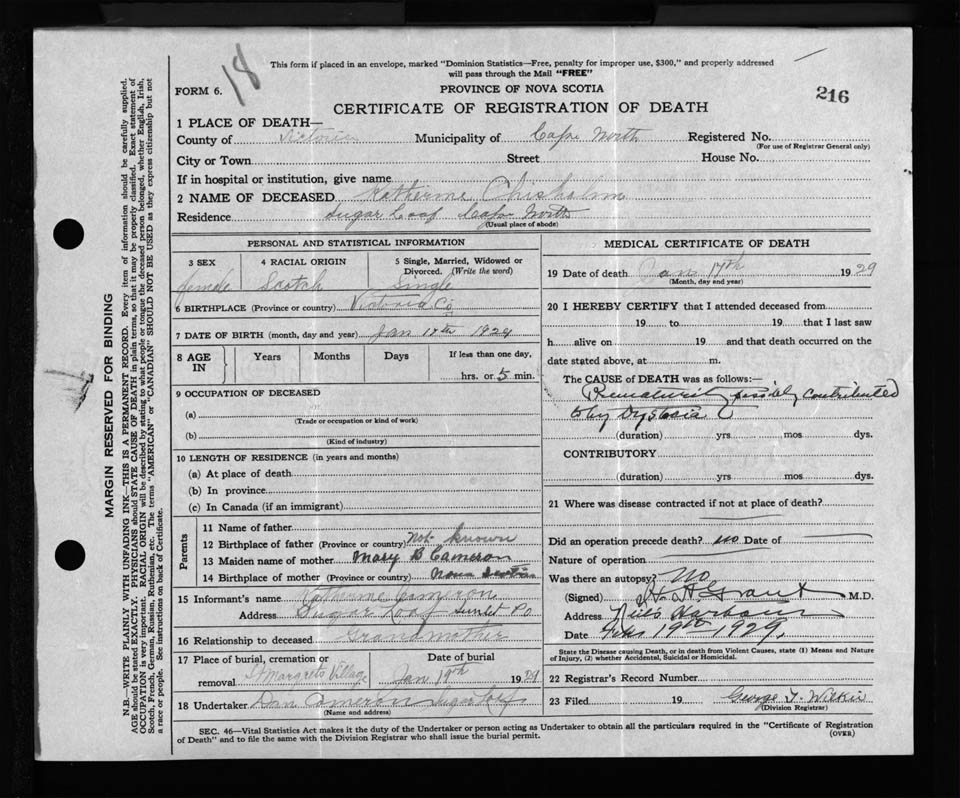 18
This form if placed in an envelope, marked "Dominion Statistics—Free, penalty for improper use, $300," and properly addressed
will pass through the Mail "FREE"
FORM 6.
PROVINCE OF NOVA SCOTIA
216
CERTIFICATE OF REGISTRATION OF DEATH
1 PLACE OF DEATH—
County of Victoria Municipality of Cape North Registered No.
(For use of Registrar General only)
City or Town Street House No.
If in hospital or institution, give name
2 NAME OF DECEASED Katherine Chisholm
Residence Sugar Loaf Cape North
(Usual place of abode)
PERSONAL AND STATISTICAL INFORMATION
3 SEX 4 RACIAL ORIGIN 5 Single, Married, Widowed or
Divorced. (Write the word)
female Scotch Single
6 BIRTHPLACE (Province or country) Victoria Co
7 DATE OF BIRTH (month, day and year) Jan 17th 1929
8 AGE IN Years Months Days If less than one day,
hrs. or 5 min.
9 OCCUPATION OF DECEASED
(a)
(Trade or occupation or kind of work)
(b)
(Kind of industry)
10 LENGTH OF RESIDENCE (in years and months)
(a) At place of death
(b) In province
(c) In Canada (if an immigrant)
Parents
11 Name of father
12 Birthplace of father (Province or country) Not known
13 Maiden name of mother Mary B Cameron
14 Birthplace of mother (Province or country) Nova Scotia
15 Informant's name Catherine Cameron
Address Sugar Loaf Sunset PO
16 Relationship to deceased Grandmother
17 Place of burial, cremation or Date of burial
removal St Margrets Village Jan 19th 1929
18 Undertaker Dan Cameron Sugar Loaf
(Name and address)
MEDICAL CERTIFICATE OF DEATH
19 Date of death Jan 17th 1929
(Month, day and year)
20 I HEREBY CERTIFY that I attended deceased from
19 to 19 that I last saw
h alive on 19 and that death occurred on the
date stated above, at m.
The CAUSE of DEATH was as follows:—
Prematurity possibly contributed
to by Dystocia
(duration) yrs mos dys.
CONTRIBUTORY
(duration) yrs. mos. dys.
21 Where was disease contracted if not at place of death?
Did an operation precede death? no Date of
Nature of operation
Was there an autopsy? No
(Signed) Grant M.D.
Address Neil's Harbour
Date Feb 19th 1929.
State the Disease causing Death, or in death from Violent Causes, state (1) Means and Nature
of Injury, (2) whether Accidental, Suicidal or Homicidal.
22 Registrar's Record Number
23 Filed 19 George T. Wilkie
(Division Registrar)
SEC. 46—Vital Statistics Act makes it the duty of the Undertaker or person acting as Undertaker to obtain all the particulars required in the "Certificate of Registration
of Death" and to file the same with the Division Registrar who shall issue the burial permit.
(OVER)
MARGIN RESERVED FOR BINDING
N.B.—WRITE PLAINLY WITH UNFADING INK—THIS IS A PERMANENT RECORD. Every item of information should be carefully supplied.
AGE should be stated EXACTLY. PHYSICIANS should STATE CAUSE OF DEATH in plain terms, so that it may be properly classified. Exact statement of
OCCUPATION is very important. RACIAL ORIGIN will be described by stating to what people or tongue the deceased person belonged, whether English, Irish,
Scotch, French, German, Russian, Ruthenian, etc. The terms "AMERICAN" or "CANADIAN" SHOULD NOT BE USED as they express citizenship but not
a race or people. See instructions on back of Certificate.